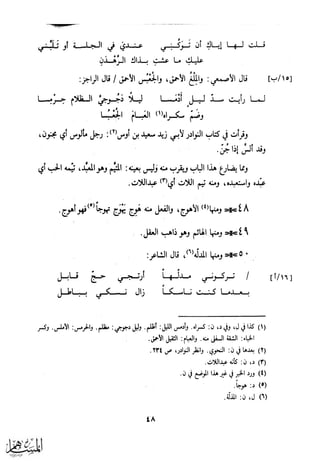 قلت لها إياك أن تركني عندي في الجلسة أو تلبني
عليك ما عشت بذاك الدهدن
[١٥/ب] قال الأصمعي: والملغ الأحمق، والجبس الأحمق/ قال الراجز:
لما رأيت سد ليل أدمسا ليلا دجوجي الظلام جرمسا
وضم سكراه(١) العبام الجبسا
وقرأت في كتاب النوادر لأبي زيد سعيد بن أوس(٢): رجل مألوس أي مجنون،
وقد ألس إذا جن.
ومما يضارع هذا الباب ويقرب منه وليس بعينه: المتيم وهو المعبد، تيمه الحب أي
عبده واستعبده، ومنه تيم اللات أي(٣) عبد اللات.
٤٨ ومنها(٤) الأهوج، والفعل منه هوج يهوج تهوجا(٥) فهو أهوج.
٤٩ ومنها الهائم وهو ذاهب العقل.
٥٠ ومنها المدله(٦)، قال الشاعر:
[١٦/أ] / تركوني مدلها أرتجي حج قابل
بعدما كنت ناسكا زال نسكي بباطل
(١) كذا في ل، وفي د، ن: كسراه. وأدمس الليل: أظلم. وليل دجوجي: مظلم. والجرمس: الأملس. وكسر
الخباء: الشقة السفلى منه. والعبام: الثقيل الأحمق.
(٢) بعدها في ن: النحوي. وانظر النوادر، ص ٢٣٤.
(٣) د، ن: كأنه عبداللات.
(٤) ورد الخبر في غير هذا الموضع في ن.
(٥) د: هوجا.
(٦) ل، ن: المدلة.
٤٨